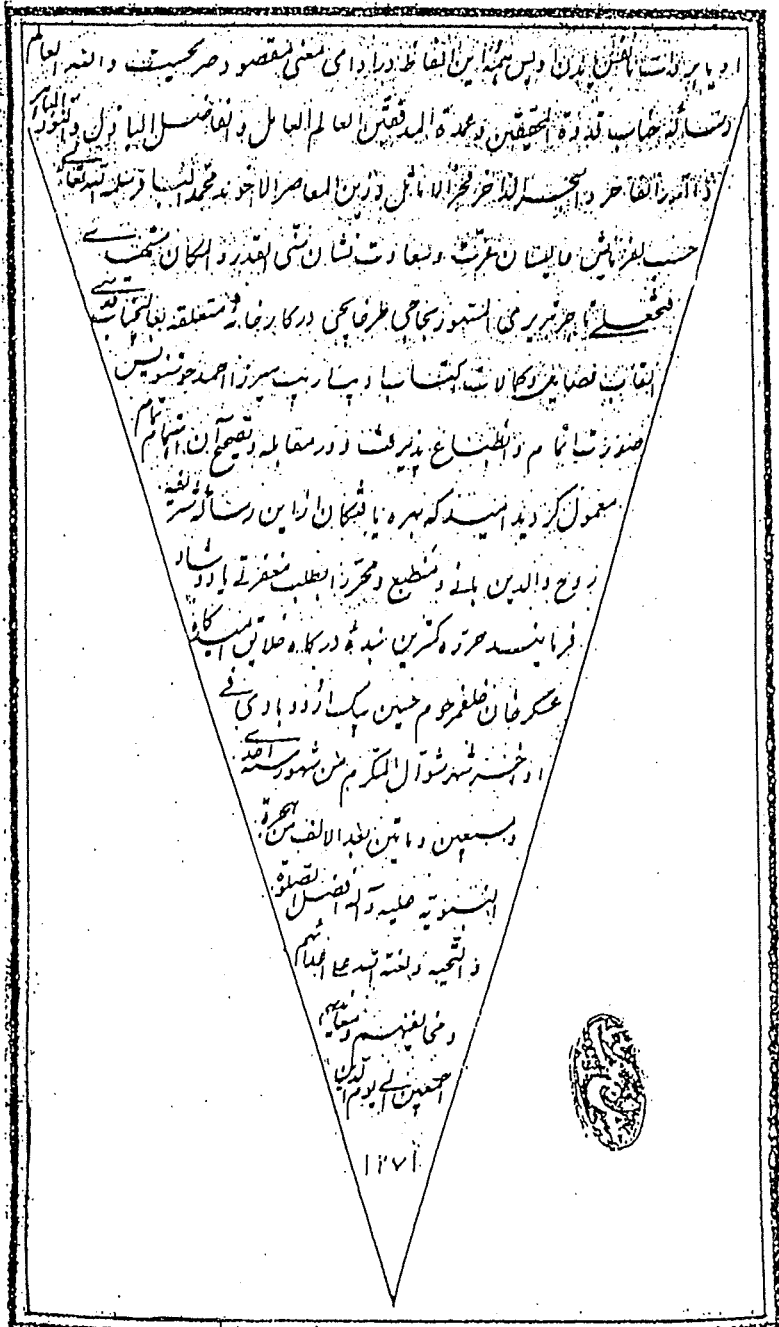 او یا بر ذات نفس بدن او پس همه این الفاظ در ادای معنی مقصود صریحست والله العالم
رساله جناب قدوة المحققین وعمدة المدققین العالم العامل والفاضل الباذل والنور الباهر
ذا الفاخر والبحر الذاخر فخر الاماثل وزین المعاصر الاخوند محمد الباقر سلمه الله تعالی
حسب الفرمایش عالیشان عزت وسعادت نشان سنی القدر والمکان مشهدی
فتحعلی تاجر تبریزی المشهور بحاجی در کارخانه متعلقه بعالیجناب قدسی
القاب فضایل وکمالات اکتساب میرزا احمد خوشنویس
صورت اتمام وانطباع پذیرفت ودر مقابله وتصحیح آن اهتمام تمام
معمول گردید امید که بهره یافتگان از این رساله شریفه
روح والدین بانی ومنطبع ومحرر را بطلب مغفرت یاد وشاد
فرمایند حرره کمترین بنده درگاه خلایق امیدگاه
عسکر خان خلف مرحوم حسین بیک اردوبادی فی
اواخر شهر شوال المکرم من شهور سنه احدی
وسبعین وماتین بعد الالف من هجرة
النبویه علیه وآله افضل الصلوة
والتحیه ولعنة الله علی اعدائهم
ومخالفیهم ومعاندیهم
اجمعین الی یوم الدین
۱۲۷۱